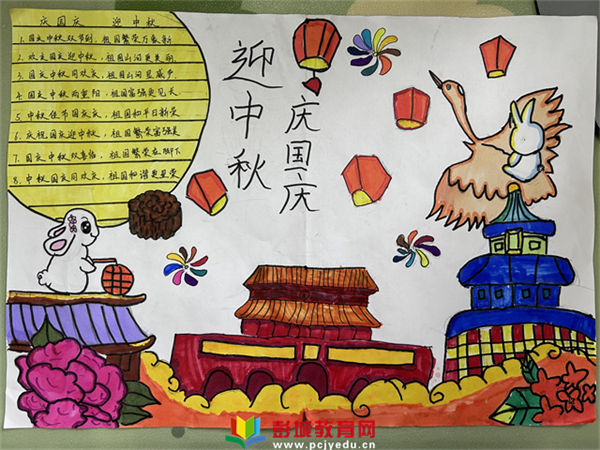 庆国庆 迎中秋
1. 国庆中秋双节到，祖国繁荣万象新
2. 欢庆国庆迎中秋，祖国山河更美丽
3. 国庆中秋同欢庆，祖国山河显威严
4. 国庆中秋两重阳，祖国富强更见长
5. 中秋佳节国庆庆，祖国和平日新荣
6. 庆祝国庆迎中秋，祖国繁荣富强美
7. 国庆中秋双喜临，祖国繁荣在脚下
8. 中秋国庆同欢庆，祖国和谐更显荣
迎中秋
庆国庆
彭城教育网
www.pcjyedu.cn